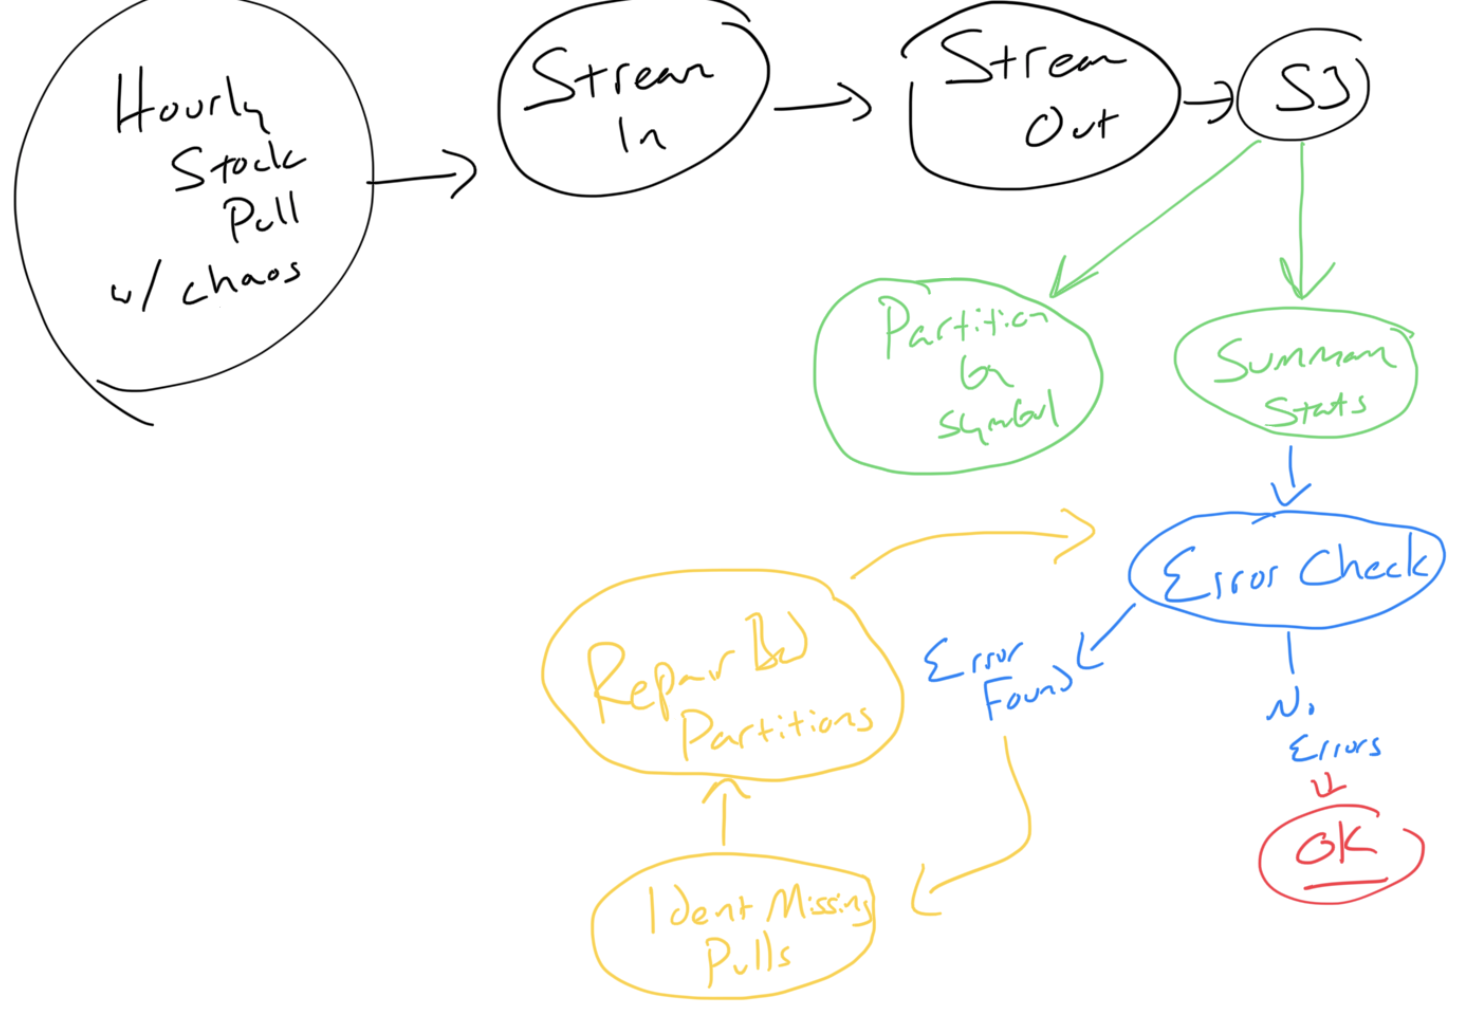 Hourly
Stock
Pull
w/ chaos
Stream
In
Stream
Out
S3
Partition
by
symbol
Summary
Stats
Error Check
Error
Found
No
Errors
OK
Repair Bad
Partitions
Ident Missing
Pulls